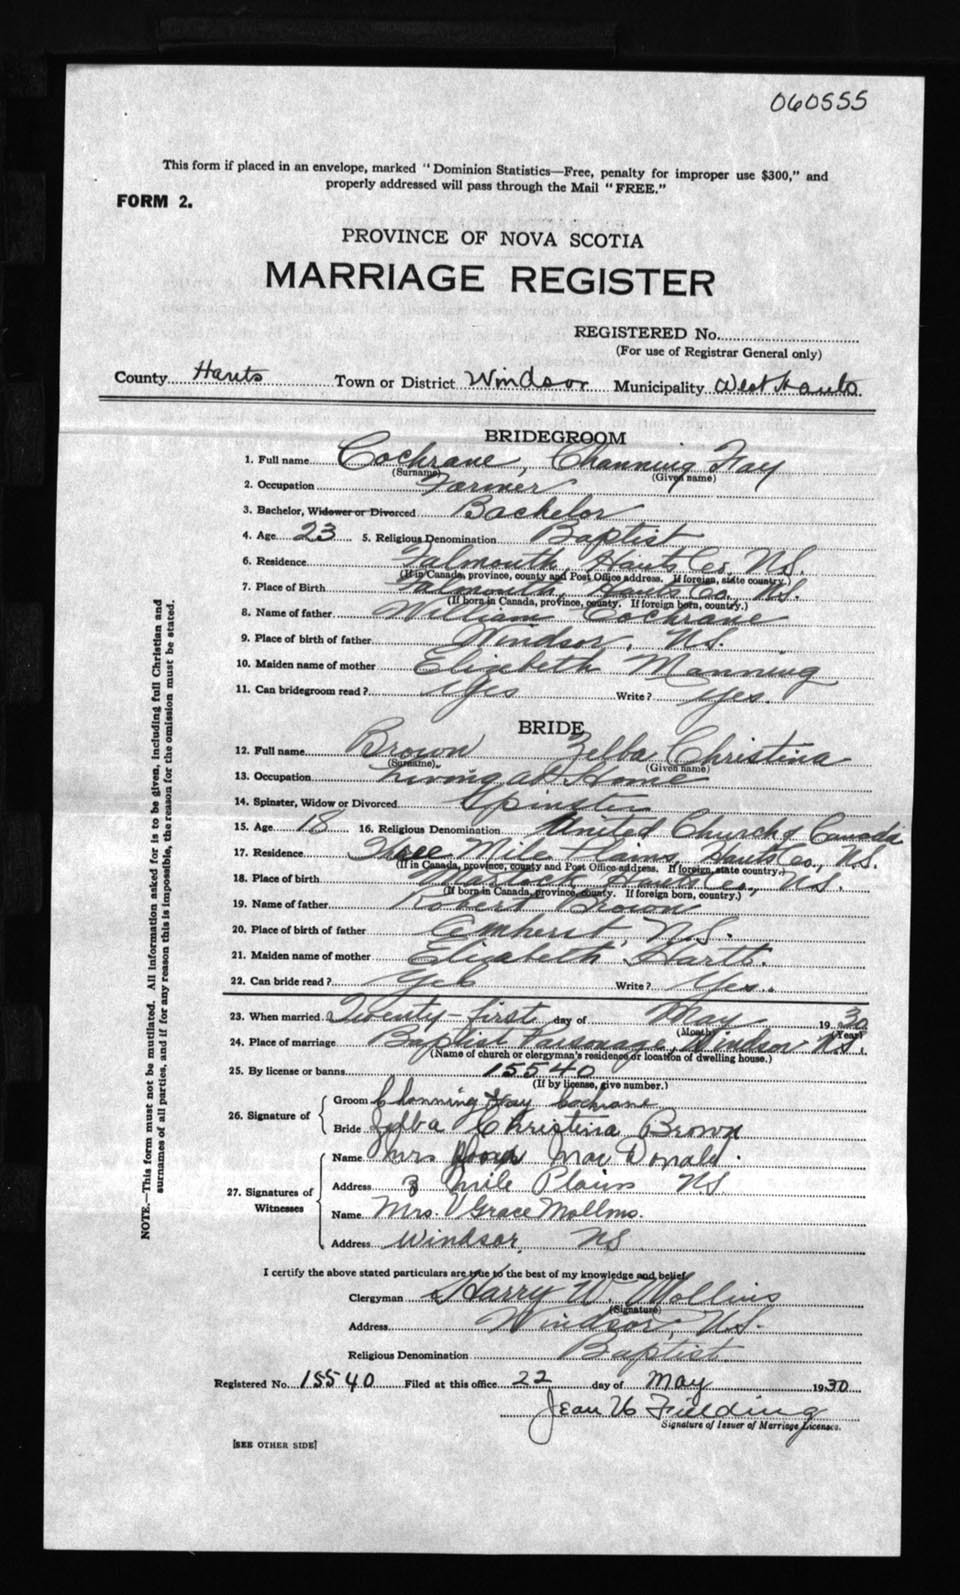 060555
This form if placed in an envelope, marked "Dominion Statistics—Free, penalty for improper use $300," and
properly addressed will pass through the Mail "FREE."
FORM 2.
PROVINCE OF NOVA SCOTIA
MARRIAGE REGISTER
REGISTERED No.
(For use of Registrar General only)
County Hants Town or District Windsor Municipality West Hants
BRIDEGROOM
1. Full name Cochrane, Channing Fay
(Surname) (Given name)
2. Occupation Farmer
3. Bachelor, Widower or Divorced Bachelor
4. Age 23 5. Religious Denomination Baptist
6. Residence Falmouth, Hants Co. N.S.
(If in Canada, province, county and Post Office address. If foreign, state country.)
7. Place of Birth Falmouth, Hants Co. N.S.
(If born in Canada, province, county. If foreign born, country.)
8. Name of father William Cochrane
9. Place of birth of father Windsor, N.S.
10. Maiden name of mother Elizabeth Manning
11. Can bridegroom read? Yes Write? Yes.
BRIDE
12. Full name Brown Zelba Christina
(Surname). (Given name)
13. Occupation Living at Home
14. Spinster, Widow or Divorced Spinster
15. Age 18 16. Religious Denomination United Church of Canada
17. Residence Three Mile Plains, Hants Co., N.S.
(If in Canada, province, county and Post Office address. If foreign, state country.)
18. Place of birth Hants Co., N.S.
(If born in Canada, province, county. If foreign born, country.)
19. Name of father Robert Brown
20. Place of birth of father Amherst, N.S.
21. Maiden name of mother Elizabeth
22. Can bride read? Yes Write? Yes.
23. When married Twenty-first day of May 1930
(Month) (Year)
24. Place of marriage Baptist Parsonage, Windsor N.S.
(Name of church or clergyman's residence or location of dwelling house.)
25. By license or banns 15540
(If by license, give number.)
26. Signature of Groom Channing Fay Cochrane
Bride Zelba Christina Brown
27. Signatures of Witnesses Name Mrs MacDonald.
Address 3 Mile Plains NS
Name Mrs. Grace Mollins.
Address Windsor NS
I certify the above stated particulars are true to the best of my knowledge and belief
Clergyman Harry W. Mollins
(Signature)
Address Windsor, N.S.
Religious Denomination Baptist.
Registered No. 15540 Filed at this office 22 day of May 1930
Jean Fielding
Signature of Issuer of Marriage Licenses.
[SEE OTHER SIDE]
NOTE.—This form must not be mutilated. All information asked for is to be given, including full Christian and
surnames of all parties, and if for any reason this is impossible, the reason for the omission must be stated.